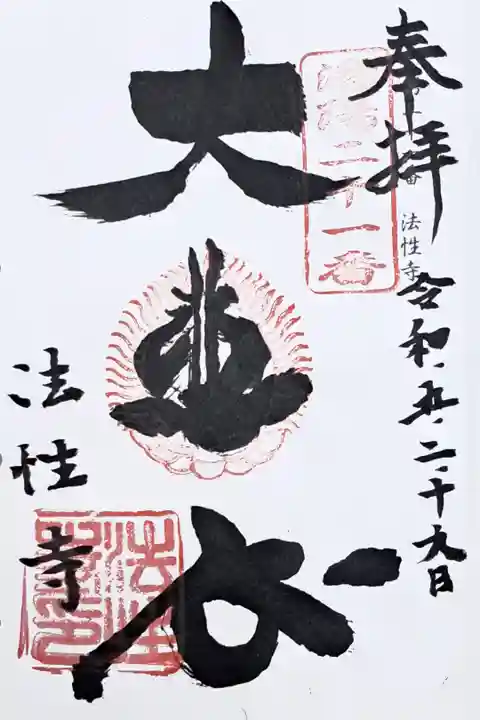 奉拝
洛陽二十一番
番 法性寺
令和五.二.十九日
大悲
法性寺